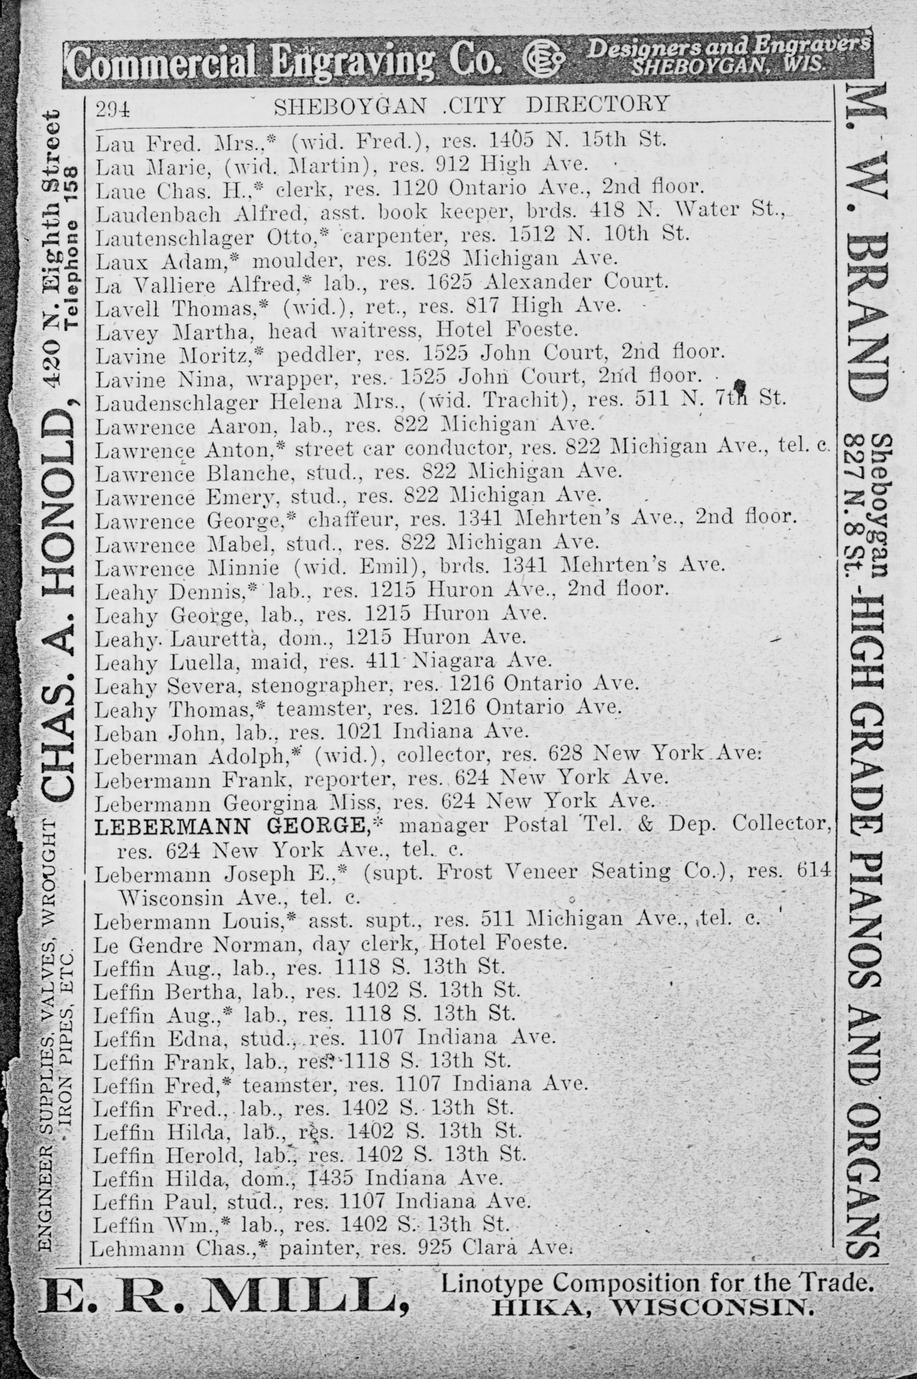 Commercial Engraving Co. CEC Designers and Engravers
SHEBOYGAN, WIS.
294 SHEBOYGAN CITY DIRECTORY
Lau Fred. Mrs.,* (wid. Fred.), res. 1405 N. 15th St.
Lau Marie, (wid. Martin), res. 912 High Ave.
Laue Chas. H.,* clerk, res. 1120 Ontario Ave., 2nd floor.
Laudenbach Alfred, asst. book keeper, brds. 418 N. Water St.,
Lautenschlager Otto,* carpenter, res. 1512 N. 10th St.
Laux Adam,* moulder, res. 1628 Michigan Ave.
La Valliere Alfred,* lab., res. 1625 Alexander Court.
Lavell Thomas,* (wid.), ret., res. 817 High Ave.
Lavey Martha, head waitress, Hotel Foeste.
Lavine Moritz,* peddler, res. 1525 John Court, 2nd floor.
Lavine Nina, wrapper, res. 1525 John Court, 2nd floor.
Laudenschlager Helena Mrs., (wid. Trachit), res. 511 N. 7th St.
Lawrence Aaron, lab., res. 822 Michigan Ave.
Lawrence Anton,* street car conductor, res. 822 Michigan Ave., tel. c.
Lawrence Blanche, stud., res. 822 Michigan Ave.
Lawrence Emery, stud., res. 822 Michigan Ave.
Lawrence George,* chaffeur, res. 1341 Mehrten's Ave., 2nd floor.
Lawrence Mabel, stud., res. 822 Michigan Ave.
Lawrence Minnie (wid. Emil), brds. 1341 Mehrten's Ave.
Leahy Dennis,* lab., res. 1215 Huron Ave., 2nd floor.
Leahy George, lab., res. 1215 Huron Ave.
Leahy Lauretta, dom., 1215 Huron Ave.
Leahy Luella, maid, res. 411 Niagara Ave.
Leahy Severa, stenographer, res. 1216 Ontario Ave.
Leahy Thomas,* teamster, res. 1216 Ontario Ave.
Leban John, lab., res. 1021 Indiana Ave.
Leberman Adolph,* (wid.), collector, res. 628 New York Ave.
Lebermann Frank, reporter, res. 624 New York Ave.
Lebermann Georgina Miss, res. 624 New York Ave.
LEBERMANN GEORGE,* manager Postal Tel. & Dep. Collector,
res. 624 New York Ave., tel. c.
Lebermann Joseph E.,* (supt. Frost Veneer Seating Co.), res. 614
Wisconsin Ave., tel. c.
Lebermann Louis,* asst. supt., res. 511 Michigan Ave., tel. c.
Le Gendre Norman, day clerk, Hotel Foeste.
Leffin Aug., lab., res. 1118 S. 13th St.
Leffin Bertha, lab., res. 1402 S. 13th St.
Leffin Aug.,* lab., res. 1118 S. 13th St.
Leffin Edna, stud., res. 1107 Indiana Ave.
Leffin Frank, lab., res. 1118 S. 13th St.
Leffin Fred,* teamster, res. 1107 Indiana Ave.
Leffin Fred., lab., res. 1402 S. 13th St.
Leffin Hilda, lab., res. 1402 S. 13th St.
Leffin Herold, lab., res. 1402 S. 13th St.
Leffin Hilda, dom., 1435 Indiana Ave.
Leffin Paul, stud., res. 1107 Indiana Ave.
Leffin Wm.,* lab., res. 1402 S. 13th St.
Lehmann Chas.,* painter, res. 925 Clara Ave.
CHAS. A. HONOLD, 420 N. Eighth Street
Telephone 158
ENGINEER SUPPLIES, VALVES, WROUGHT
IRON PIPES, ETC.
M. W. BRAND Sheboygan
827 N. 8 St. -HIGH GRADE PIANOS AND ORGANS
E. R. MILL, Linotype Composition for the Trade.
HIKA, WISCONSIN.